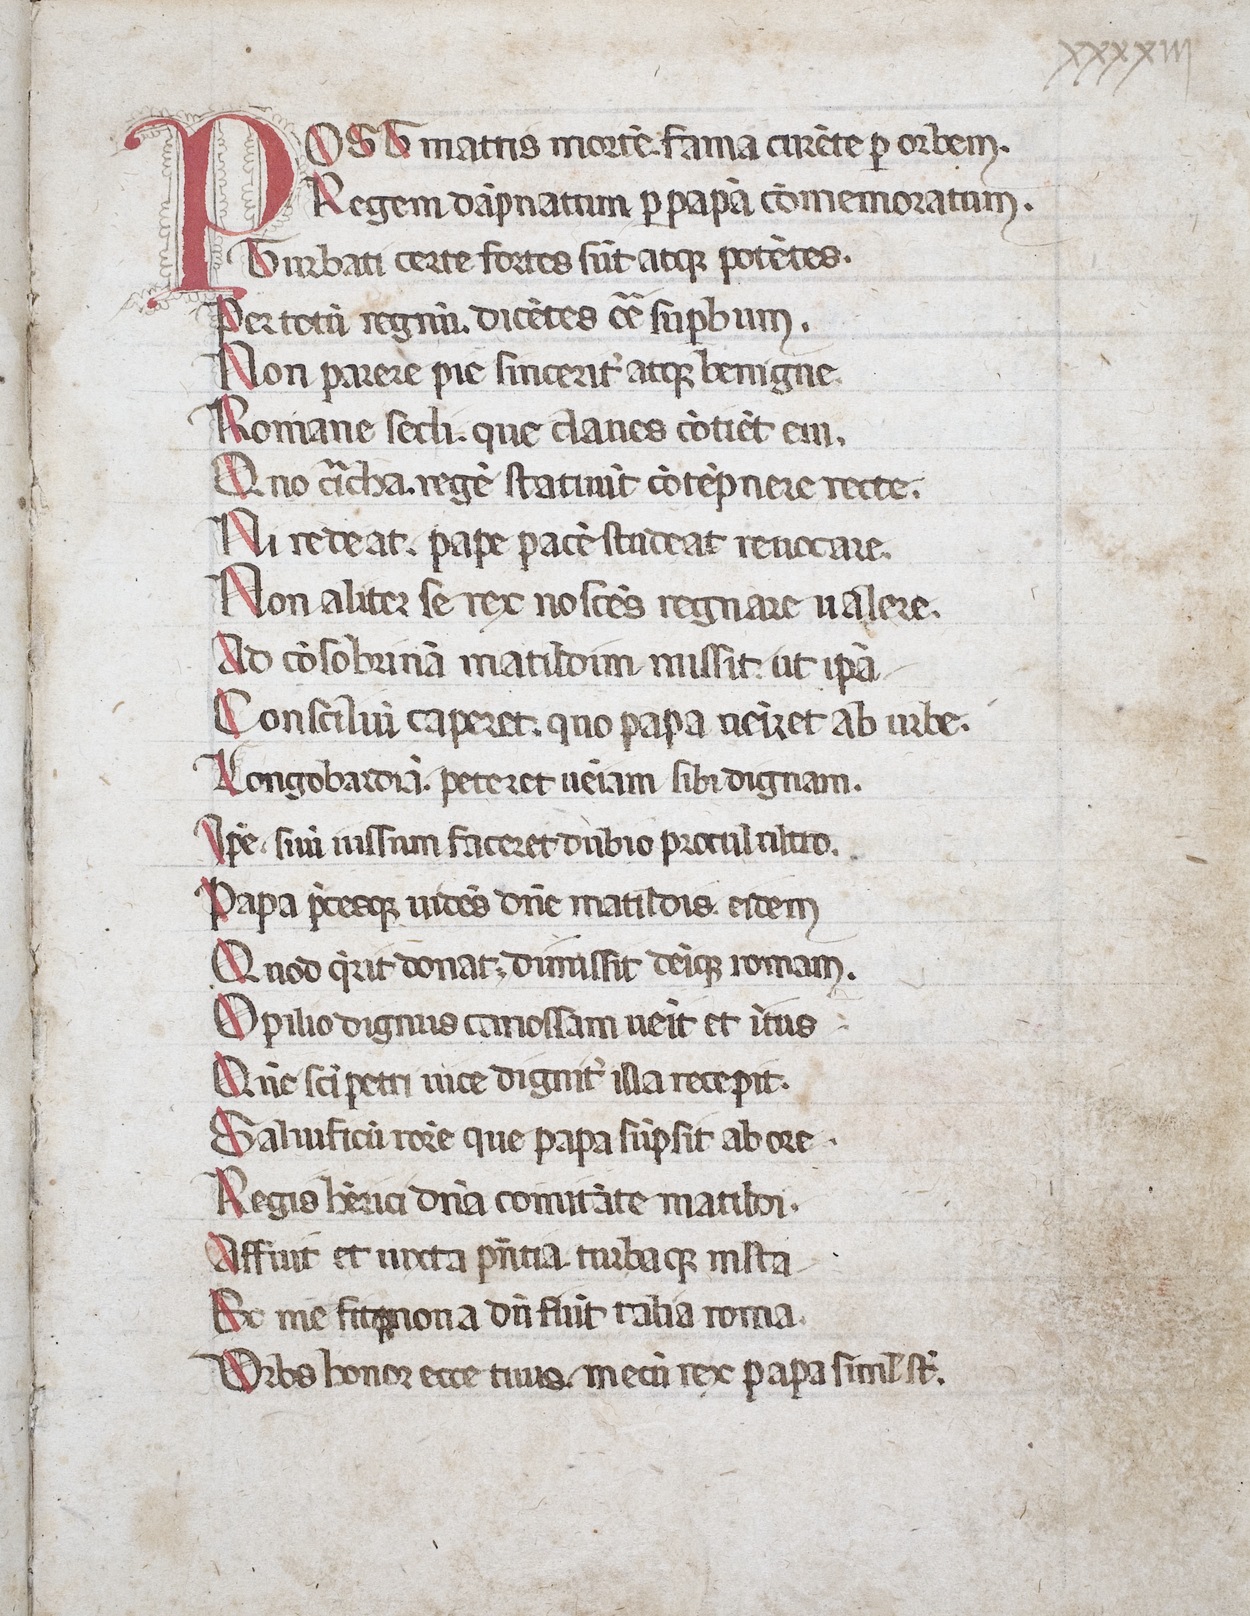 xxxxiii
POST mattis mortē. fama currēte ꝑ orbem.
Regem dāpnatum ꝑ papā cōmemoratum.
Turbati certe fortes sūt atqꝫ potētes.
Per totū regnū. dicētes eē̄ suꝑbum.
Non parere pie sincerit᷑ atqꝫ benigne.
Romane sedi. que claues cōtiēt em.
Quo regē statuūt cōtēpnere recte.
Ni redeat. pape pacē studeat reuocare.
Non aliter se rex noscēs regnare ualere.
Ad cōsobrinā matildim missit. ut ipā
Consciliū caperet. quo papa ueīret ab urbe.
Longobardiā. peteret uēiam sibi dignam.
Ipē. suū iussum faceret dubio procul
Papa p̄cesqꝫ uidēs dn̄e matildis. eidem
Quod q̄rit donat. dimissit dēiqꝫ romam.
Opilio dignus canossam uēit et ītus
Quē sc̄i petri uice dignit᷑ illa recepit.
Saluificū rore que papa sūpsit ab ore.
Regis hērici dn̄a comitāte matildi.
Affuit et iuxta pn̄tia turbaqꝫ iusta
Ex me fit noua dū fiūt talia roma.
Urbs honor ecce tuus. mecū rex papa simul st᷑.